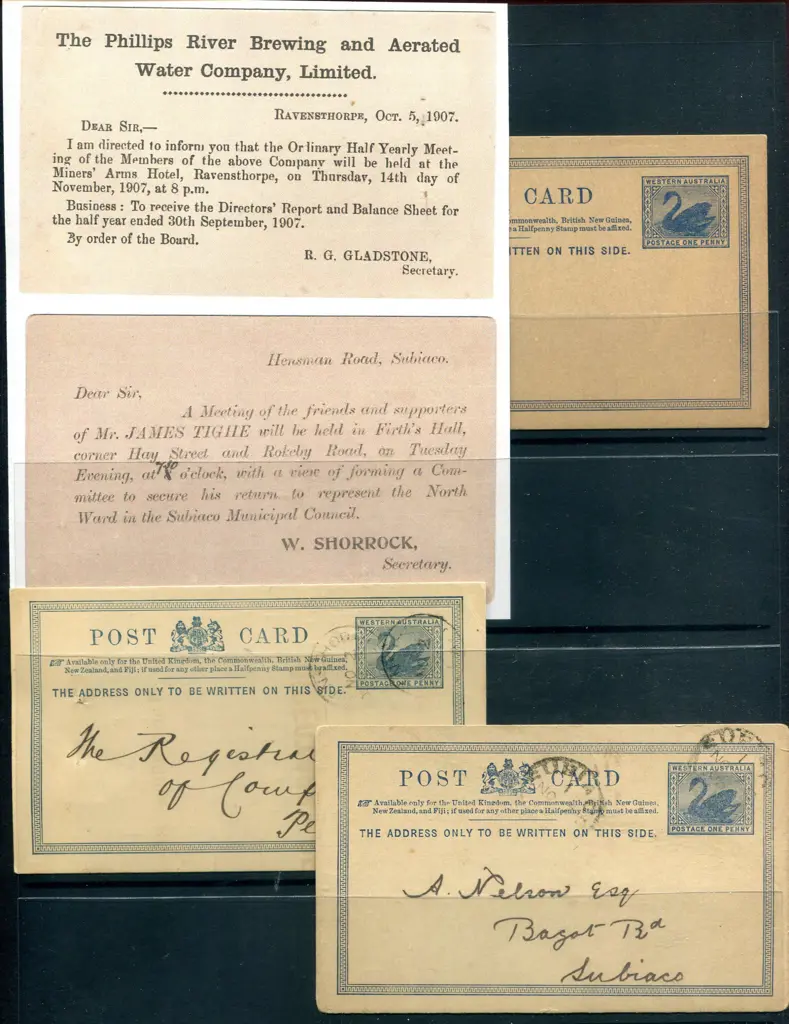 The Phillips River Brewing and Aerated
Water Company, Limited.
Ravensthorpe, Oct. 5, 1907.
Dear Sir,—
I am directed to inform you that the Or linary Half Yearly Meet-
ing of the Members of the above Company will be held at the
Miners' Arms Hotel, Ravensthorpe, on Thursday, 14th day of
November, 1907, at 8 p.m.
Business: To receive the Directors' Report and Balance Sheet for
the half year ended 30th September, 1907.
By order of the Board.
R. G. GLADSTONE,
Secretary.
CARD
WESTERN AUSTRALIA
POSTAGE ONE PENNY
mmonwealth, British New Guinea,
e a Halfpenny Stamp must be affixed.
ITTEN ON THIS SIDE.
Hensman Road, Subiaco.
Dear Sir,
A Meeting of the friends and supporters
of Mr. JAMES TIGHE will be held in Firth's Hall,
corner Hay Street and Rokeby Road, on Tuesday
Evening, at o'clock, with a view of forming a Com-
mittee to secure his return to represent the North
Ward in the Subiaco Municipal Council.
W. SHORROCK,
Secretary.
POST CARD
WESTERN AUSTRALIA
POSTAGE ONE PENNY
Available only for the United Kingdom, the Commonwealth, British New Guinea,
New Zealand, and Fiji; if used for any other place a Halfpenny Stamp must be affixed.
THE ADDRESS ONLY TO BE WRITTEN ON THIS SIDE.
The Registra
of Comp
Pe
POST CARD
WESTERN AUSTRALIA
POSTAGE ONE PENNY
Available only for the United Kingdom, the Commonwealth, British New Guinea,
New Zealand, and Fiji; if used for any other place a Halfpenny Stamp must be affixed.
THE ADDRESS ONLY TO BE WRITTEN ON THIS SIDE.
A. Nelson Esq
Bagot Rd
Subiaco